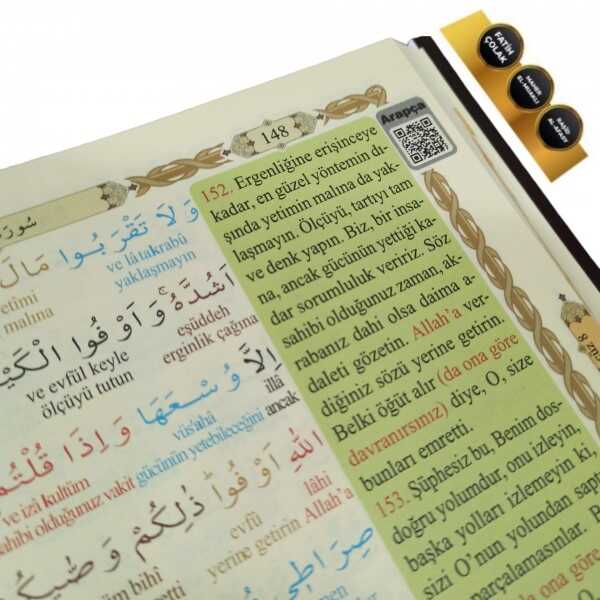 FATİH
ÇOLAK
MAHER
EL-MUAKLI
RAŞİD
AL-AFASY
Arapça
148
سُورَة
وَلَا تَقْرَبُوا مَالَ
ve lâ takrabû
yaklaşmayın
etîmi
malına
اَشُدَّهُۚ وَاَوْفُوا الْكَيْ
eşüddeh
erginlik çağına
ve evfül keyle
ölçüyü tutun
اِلَّا وُسْعَهَا وَاِذَا قُلْتُمْ
illâ
ancak
vüs'ahâ
gücünün yetebileceğini
ve izâ kultüm
sahibi olduğunuz vakit
اللّٰهِ اَوْفُوا ذٰلِكُمْ وَصّٰيكُمْ
lâhi
Allah'a
evfû
yerine getirin
bihî
صِرَاطٖي
152. Ergenliğine erişinceye
kadar, en güzel yöntemin dı-
şında yetimin malına da yak-
laşmayın. Ölçüyü, tartıyı tam
ve denk yapın. Biz, bir insa-
na, ancak gücünün yettiği ka-
dar sorumluluk veririz. Söz
sahibi olduğunuz zaman, ak-
rabanız dahi olsa daima a-
daleti gözetin. Allah'a ver-
diğiniz sözü yerine getirin.
Belki öğüt alır (da ona göre
davranırsınız) diye, O, size
bunları emretti.
153. Şüphesiz bu, Benim dos-
doğru yolumdur, onu izleyin,
başka yolları izlemeyin ki,
sizi O'nun yolundan sapt
parçalamasınlar. B
da ona göre
8 znz